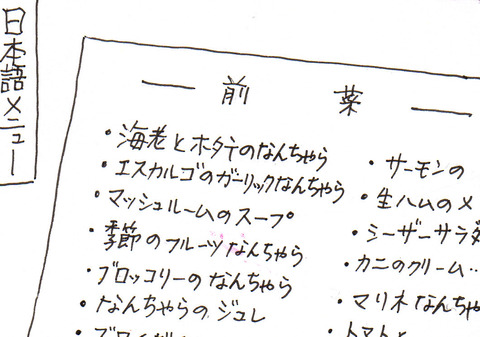 日本語メニュー
前菜
・海老とホタテのなんちゃら
・エスカルゴのガーリックなんちゃら
・マッシュルームのスープ
・季節のフルーツなんちゃら
・ブロッコリーのなんちゃら
・なんちゃらのジュレ
・サーモンの
・生ハムのメ
・シーザーサラダ
・カニのクリーム…
・マリネなんちゃ
・トマトと